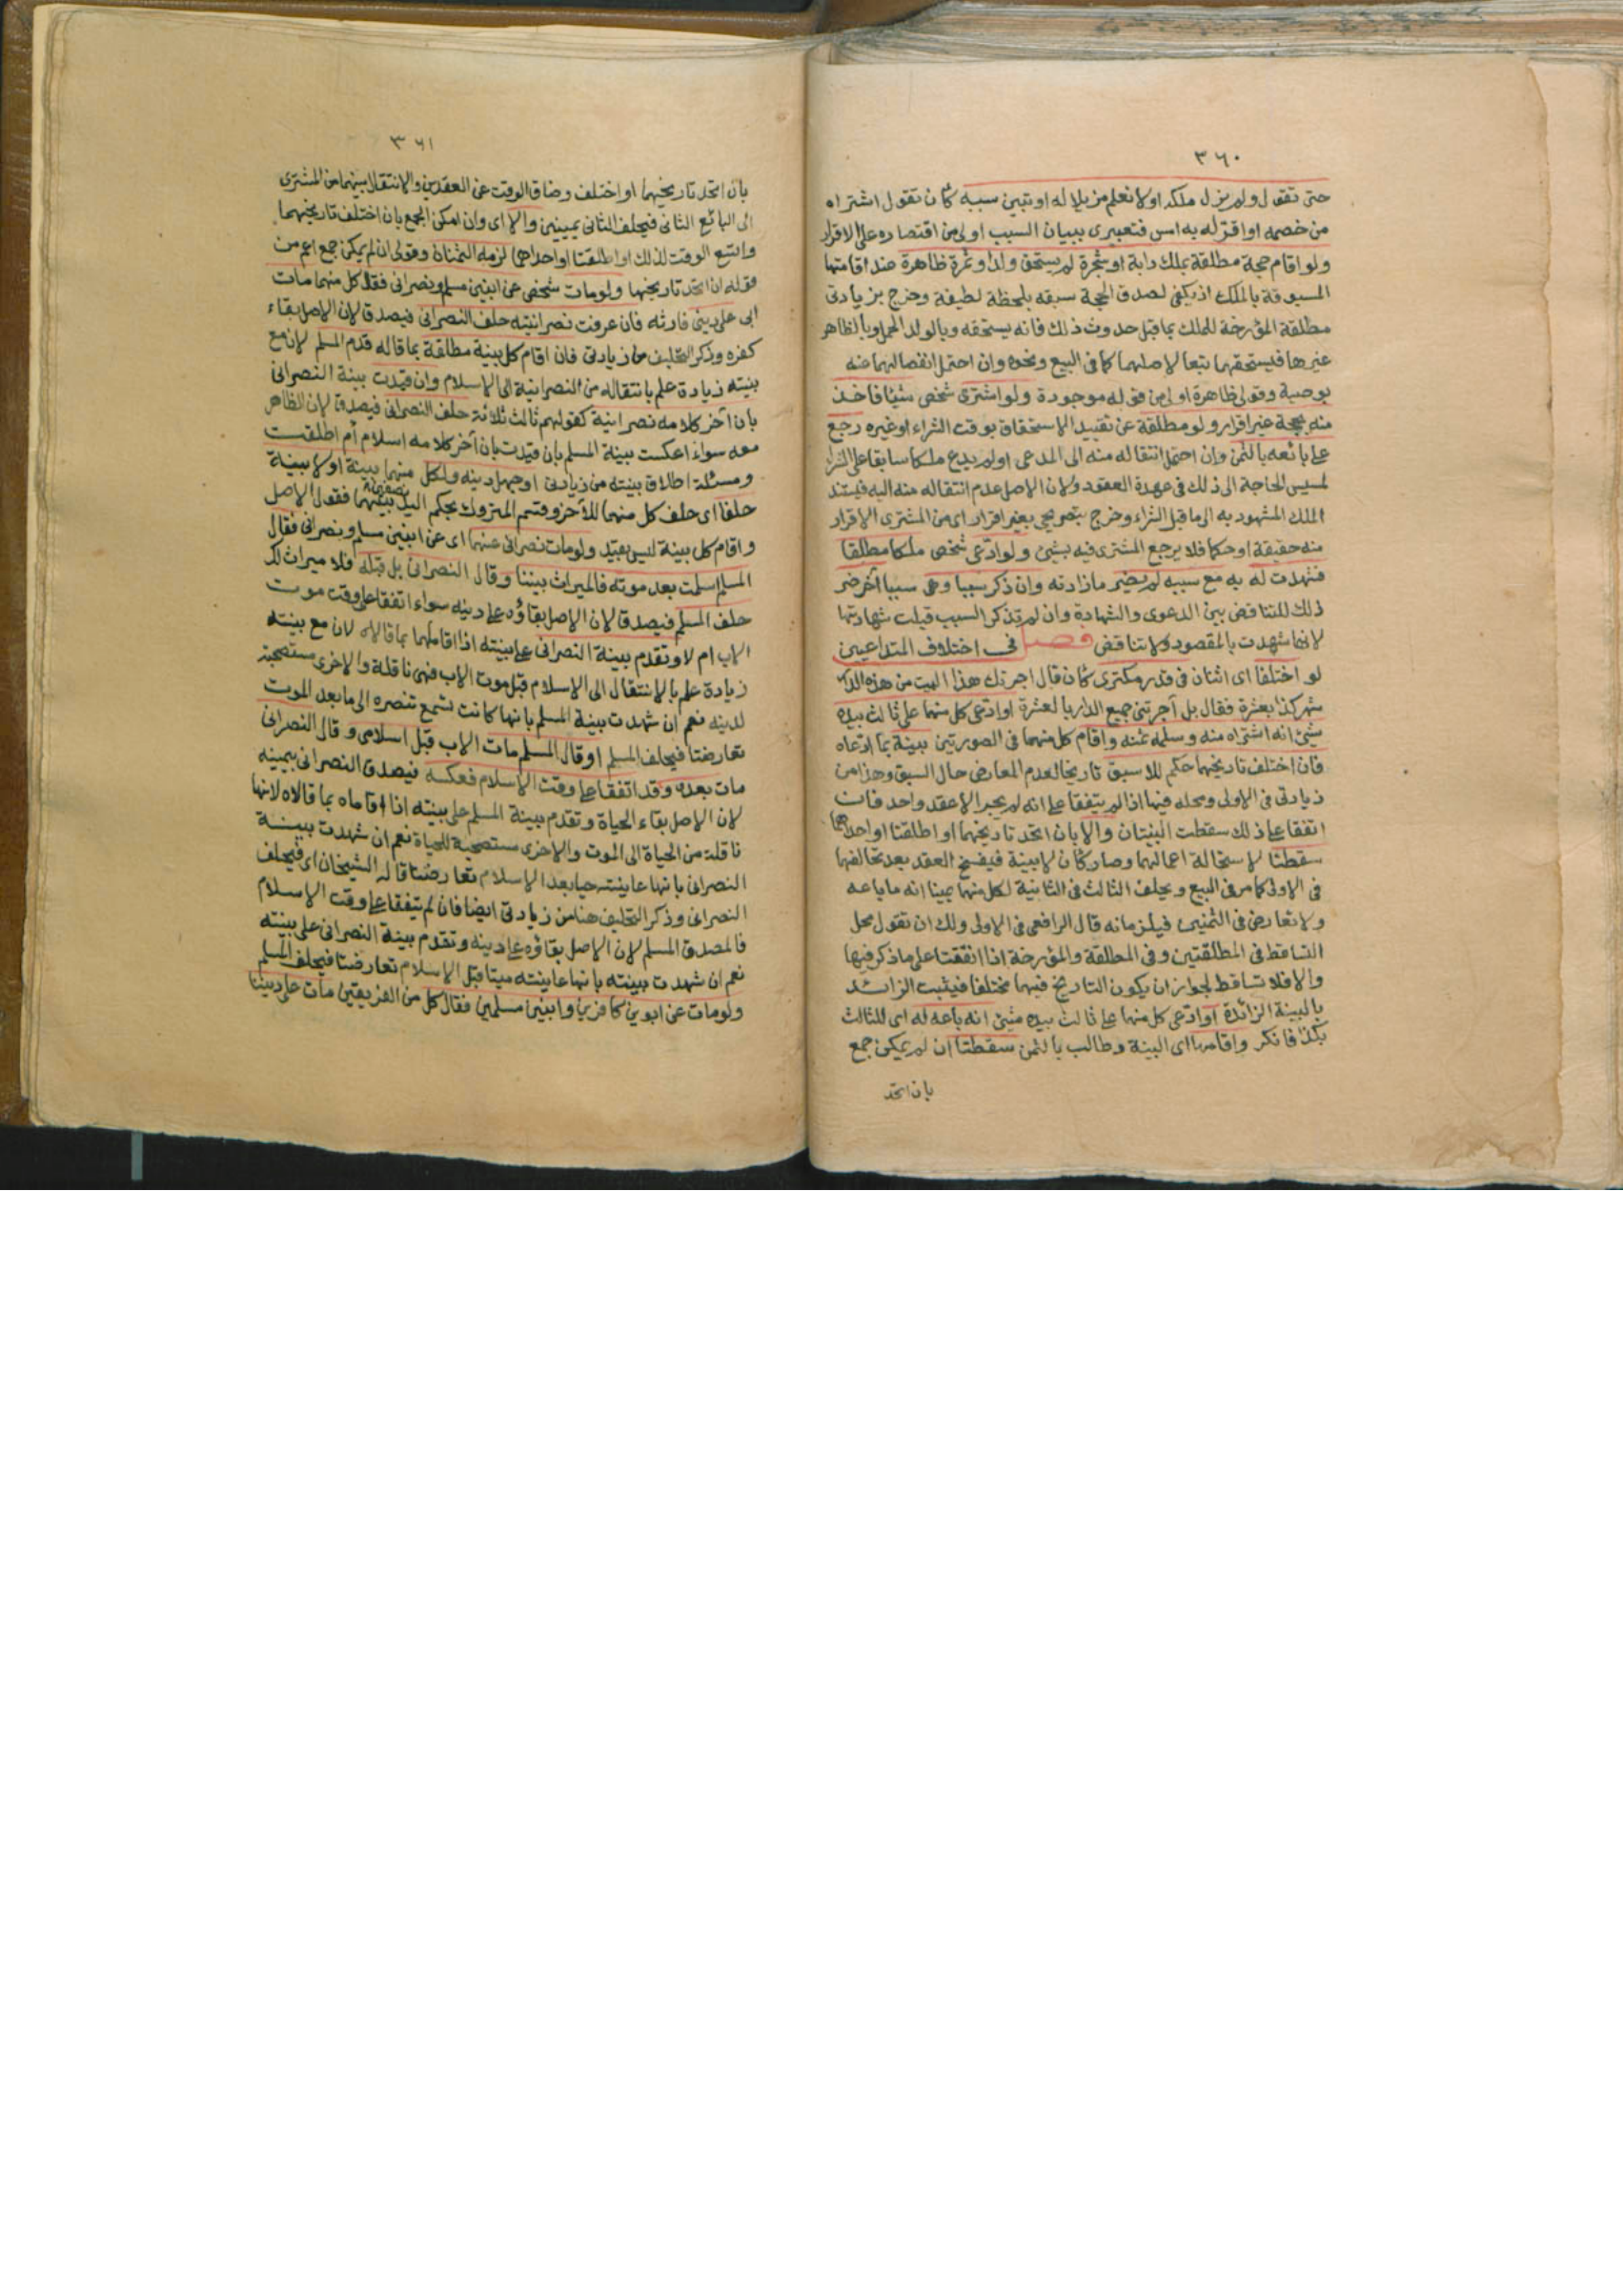 ٣٦٠
حتى تقول ولم يزل ملكه او لا نعلم مزيلا له او تبين سببه كأن تقول اشتراه
من خصمه او اقر له به امس فتعبيرى ببيان السبب اولى من اقتصاره على الاقرار
ولو اقام حجة مطلقة بملك دابة او شجرة لم يستحق ولدا و ثمرة ظاهرة عند اقامتها
المسبوقة بالملك اذ يكفى لصدق الحجة سبقه بلحظة لطيفة وخرج بزيادتى
مطلقة المؤرخة للملك بما قبل حدوث ذلك فانه يستحقه وبالولد الحمل وبالظاهر
غيرها فيستحقهما تبعا لاصلهما كما فى البيع ونحوه وان احتمل انفصالهما عنه
بوصية وقولى ظاهرة اولى من قوله موجودة ولو اشترى شخص شيئا فاخذ
منه بحجة غير اقرار ولو مطلقة عن تقييد الاستحقاق بوقت الشراء او غيره رجع
على بائعه بالثمن وان احتمل انتقاله منه الى المدعى او لم يدع ملكا سابقا على الشرا
لمسيس الحاجة الى ذلك فى عهدة العقود ولان الاصل عدم انتقاله منه اليه فيستند
الملك المشهود به الى ما قبل الشراء وخرج بتصريحى بغير اقرار اى من المشترى الاقرار
منه حقيقة او حكما فلا يرجع المشترى فيه بشئ ولو ادعى شخص ملكا مطلقا
فشهدت له به مع سببه لم يضر ما زادته وان ذكر سببا وهى سببا آخر ضر
ذلك للتناقض بين الدعوى والشهادة وان لم تذكر السبب قبلت شهادتها
لانها شهدت بالمقصود ولا تناقض فصل فى اختلاف المتداعيين
لو اختلفا اى اثنان فى قدر مكترى كأن قال اجرتك هذا البيت من هذه الدار
شهر كذا بعشرة فقال بل آجرتنى جميع الدار بالعشرة او ادعى كل منهما على ثالث بيده
شئ انه اشتراه منه وسلمه ثمنه واقام كل منهما فى الصورتين بينة بما ادعاه
فان اختلف تاريخهما حكم للاسبق تاريخا لعدم المعارض حال السبق وهذا من
زيادتى فى الاولى ومحله فيها اذا لم يتفقا على انه لم يجر الا عقد واحد فان
اتفقا على ذلك سقطت البينتان والا بان اتحد تاريخهما او اطلقتا او احداهما
سقطتا لاستحالة اعمالهما وصار كأن لا بينة فيفسخ العقد بعد تحالفهما
فى الاولى كما مر فى البيع ويحلف الثالث فى الثانية لكل منهما يمينا انه ما باعه
ولا تعارض فى الثمنين فيلزمانه قال الرافعى فى الاولى ولك ان تقول محل
التساقط فى المطلقتين وفى المطلقة والمؤرخة اذا اتفقتا على ما ذكر فيها
والا فلا تساقط لجواز ان يكون التاريخ فيهما مختلفا فيثبت الزائد
بالبينة الزائدة او ادعى كل منهما على ثالث بيده شئ انه باعه له اى للثالث
بكذا فانكر واقاماها اى البينة وطالب بالثمن سقطتا ان لم يمكن جمع
بان اتحد
٣٦١
بان اتحد تاريخهما او اختلف وضاق الوقت عن العقدين والانتقال بينهما من المشترى
الى البائع الثانى فيحلف الثانى يمينين والا اى وان امكن الجمع بان اختلف تاريخهما
واتسع الوقت لذلك او اطلقتا او احداهما لزمه الثمنان وقولى ان لم يمكن جمع اعم من
قوله ان اتحد تاريخهما ولو مات شخص عن ابنين مسلم ونصرانى فقال كل منهما مات
ابى على دينى فارثه فان عرفت نصرانيته حلف النصرانى فيصدق لان الاصل بقاء
كفره وذكر التحليف من زيادتى فان اقام كل بينة مطلقة بما قاله قدم المسلم لان مع
بينته زيادة علم بانتقاله من النصرانية الى الاسلام وان قيدت بينة النصرانى
بان آخر كلامه نصرانية كقولهم ثالث ثلاثة حلف النصرانى فيصدق لان الظاهر
معه سواء اعكست بينة المسلم بان قيدت بان آخر كلامه اسلام أم اطلقت
ومسئلة اطلاق بينته من زيادتى او جهل دينه ولكل منهما بينة او لا بينة
حلفا اى حلف كل منهما للآخر وقسم المتروك بحكم اليد بينهما نصفين فقولى الاصل
واقام كل بينة ليس بقيد ولو مات نصرانى عنهما اى عن ابنين مسلم ونصرانى فقال
المسلم اسلمت بعد موته فالميراث بيننا وقال النصرانى بل قبله فلا ميراث لك
حلف المسلم فيصدق لان الاصل بقاؤه على دينه سواء اتفقا على وقت موت
الاب ام لا وتقدم بينة النصرانى على بينته اذا اقاماهما بما قالاه لان مع بينته
زيادة علم بالانتقال الى الاسلام قبل موت الاب فهى ناقلة والاخرى مستصحبة
لدينه نعم ان شهدت بينة المسلم بانها كانت تسمع تنصره الى ما بعد الموت
تعارضتا فيحلف المسلم او قال المسلم مات الاب قبل اسلامى وقال النصرانى
مات بعده وقد اتفقا على وقت الاسلام فعكسه فيصدق النصرانى بيمينه
لان الاصل بقاء الحياة وتقدم بينة المسلم على بينته اذا اقاماه بما قالاه لانها
ناقلة من الحياة الى الموت والاخرى مستصحبة للحياة نعم ان شهدت بينة
النصرانى بانها عاينته حيا بعد الاسلام تعارضتا قاله الشيخان اى فيحلف
النصرانى وذكر التحليف هنا من زيادتى ايضا فان لم يتفقا على وقت الاسلام
فالمصدق المسلم لان الاصل بقاؤه على دينه وتقدم بينة النصرانى على بينته
نعم ان شهدت بينته بانها عاينته ميتا قبل الاسلام تعارضتا فيحلف المسلم
ولو مات عن ابوين كافرين وابنين مسلمين فقال كل من الفريقين مات على ديننا